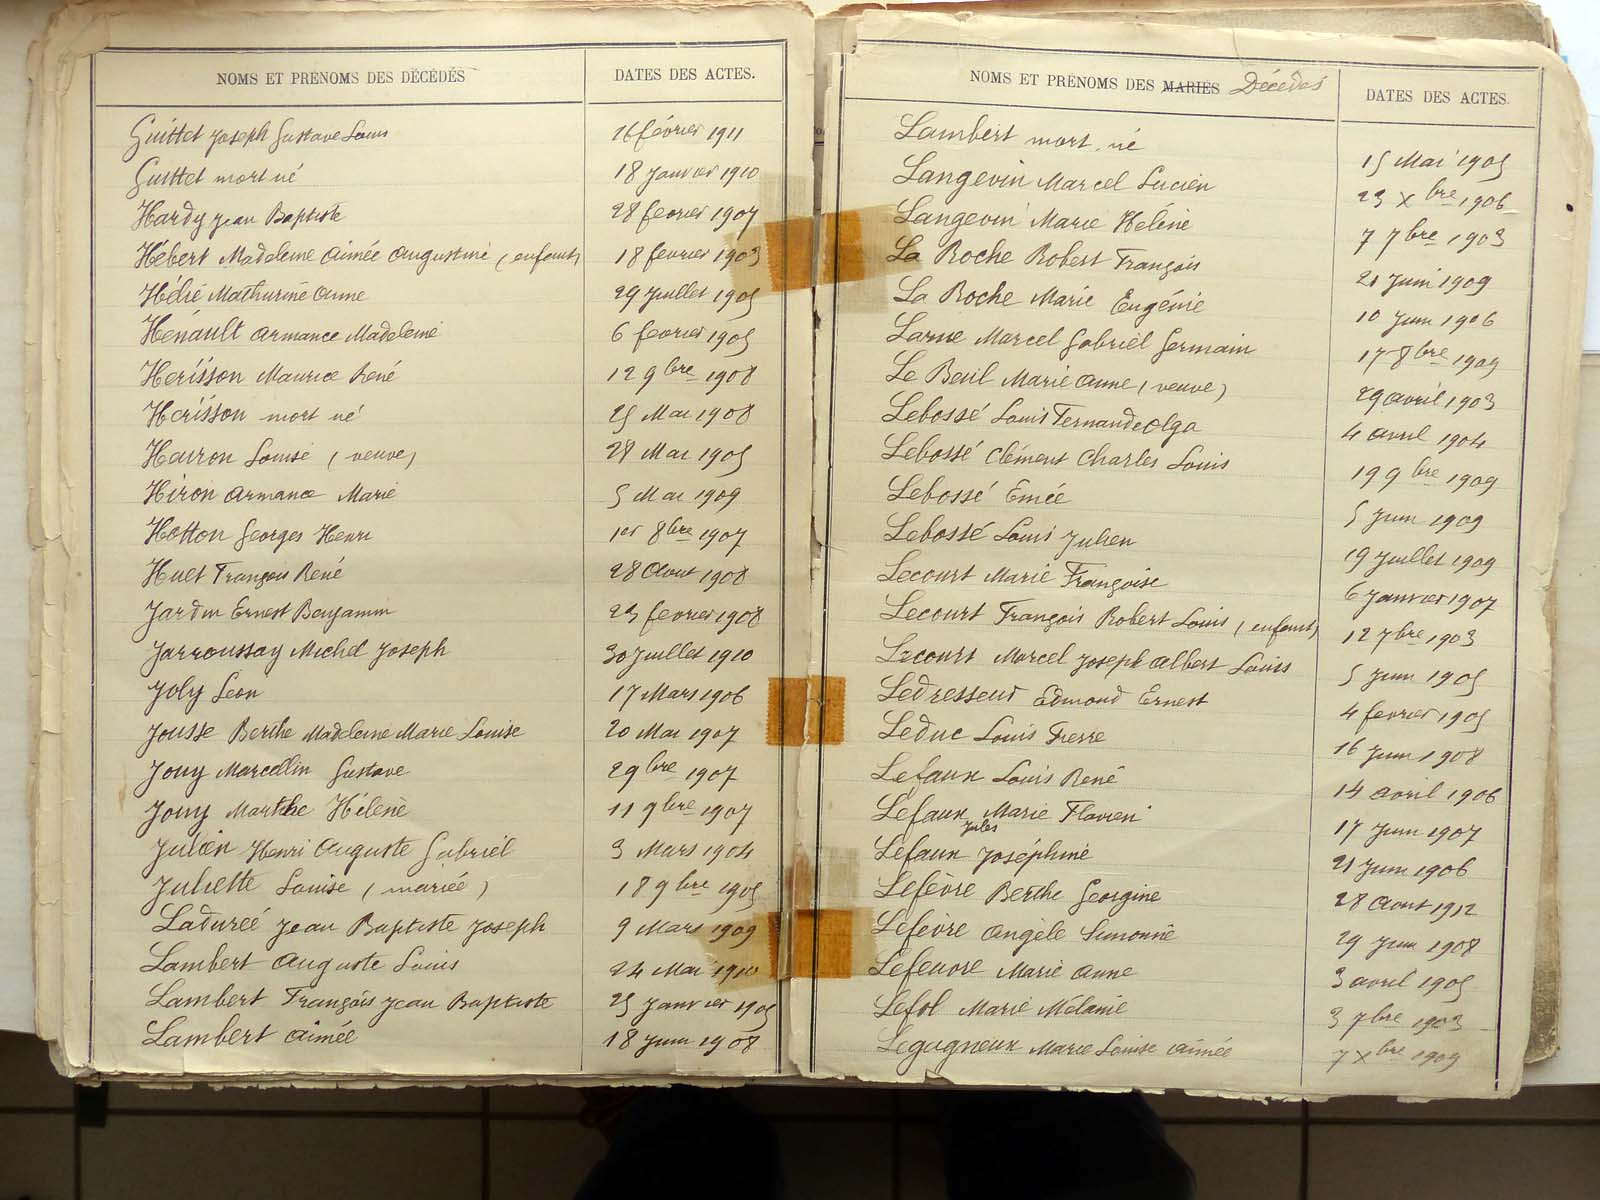 NOMS ET PRÉNOMS DES DÉCÉDÉS DATES DES ACTES.
Guittet Joseph Gustave Louis 26 février 1911
Guittet mort né 18 Janvier 1910
Hardy Jean Baptiste 28 février 1907
Hébert Madeleine Aimée Augustine (enfant) 18 février 1903
Hélié Mathurine Anne 29 Juillet 1905
Hénault Armance Madeleine 6 février 1905
Herisson Maurice René 12 9bre 1908
Herisson mort né 25 Mai 1908
Hairon Louise (veuve) 28 Mai 1905
Hiron Armance Marie 5 Mai 1909
Hotton Georges Henri 1er 8bre 1907
Huet François René 28 Aout 1908
Jardin Ernest Benjamin 23 février 1908
Jarroussay Michel Joseph 30 Juillet 1910
Joly Leon 17 Mars 1906
Jousse Berthe Madeleine Marie Louise 20 Mai 1907
Jouy Marcellin Gustave 2 9bre 1907
Jouy Marthe Hélène 11 9bre 1907
Julien Henri Auguste Gabriel 3 Mars 1904
Juliette Louise (mariée) 18 9bre 1905
Ladureé Jean Baptiste Joseph 9 Mars 1909
Lambert Auguste Louis 24 Mai 1910
Lambert François Jean Baptiste 25 Janvier 1905
Lambert Aimée 18 Juin 1908
NOMS ET PRÉNOMS DES MARIÉS Décédés DATES DES ACTES.
Lambert mort né 15 Mai 1905
Langevin Marcel Lucien 23 Xbre 1906
Langevin Marie Hélène 7 7bre 1903
La Roche Robert François 21 Juin 1909
La Roche Marie Eugénie 10 Juin 1906
Larue Marcel Gabriel Germain 17 8bre 1909
Le Beil Marie Anne (veuve) 29 avril 1903
Lebossé Louis Fernande Olga 4 avril 1904
Lebossé Clément Charles Louis 19 9bre 1909
Lebossé Emée 5 Juin 1909
Lebossé Louis Julien 19 Juillet 1909
Lecourt Marie Françoise 6 Janvier 1907
Lecourt François Robert Louis (enfant) 12 7bre 1903
Lecourt Marcel Joseph Albert Louis 5 Juin 1905
Ledresseur Edmond Ernest 4 fevrier 1905
Leduc Louis Pierre 16 Juin 1908
Lefaux Louis René 14 avril 1906
Lefaux Marie Flavien 17 Juin 1907
Jules
Lefaux Joséphine 21 Juin 1906
Lefèvre Berthe Georgine 28 Aout 1912
Lefèvre Angèle Simonne 29 Juin 1908
Lefeuvre Marie Anne 3 avril 1905
Lefol Marie Mélanie 3 7bre 1903
Legagneux Marie Louise Aimée 7 Xbre 1909